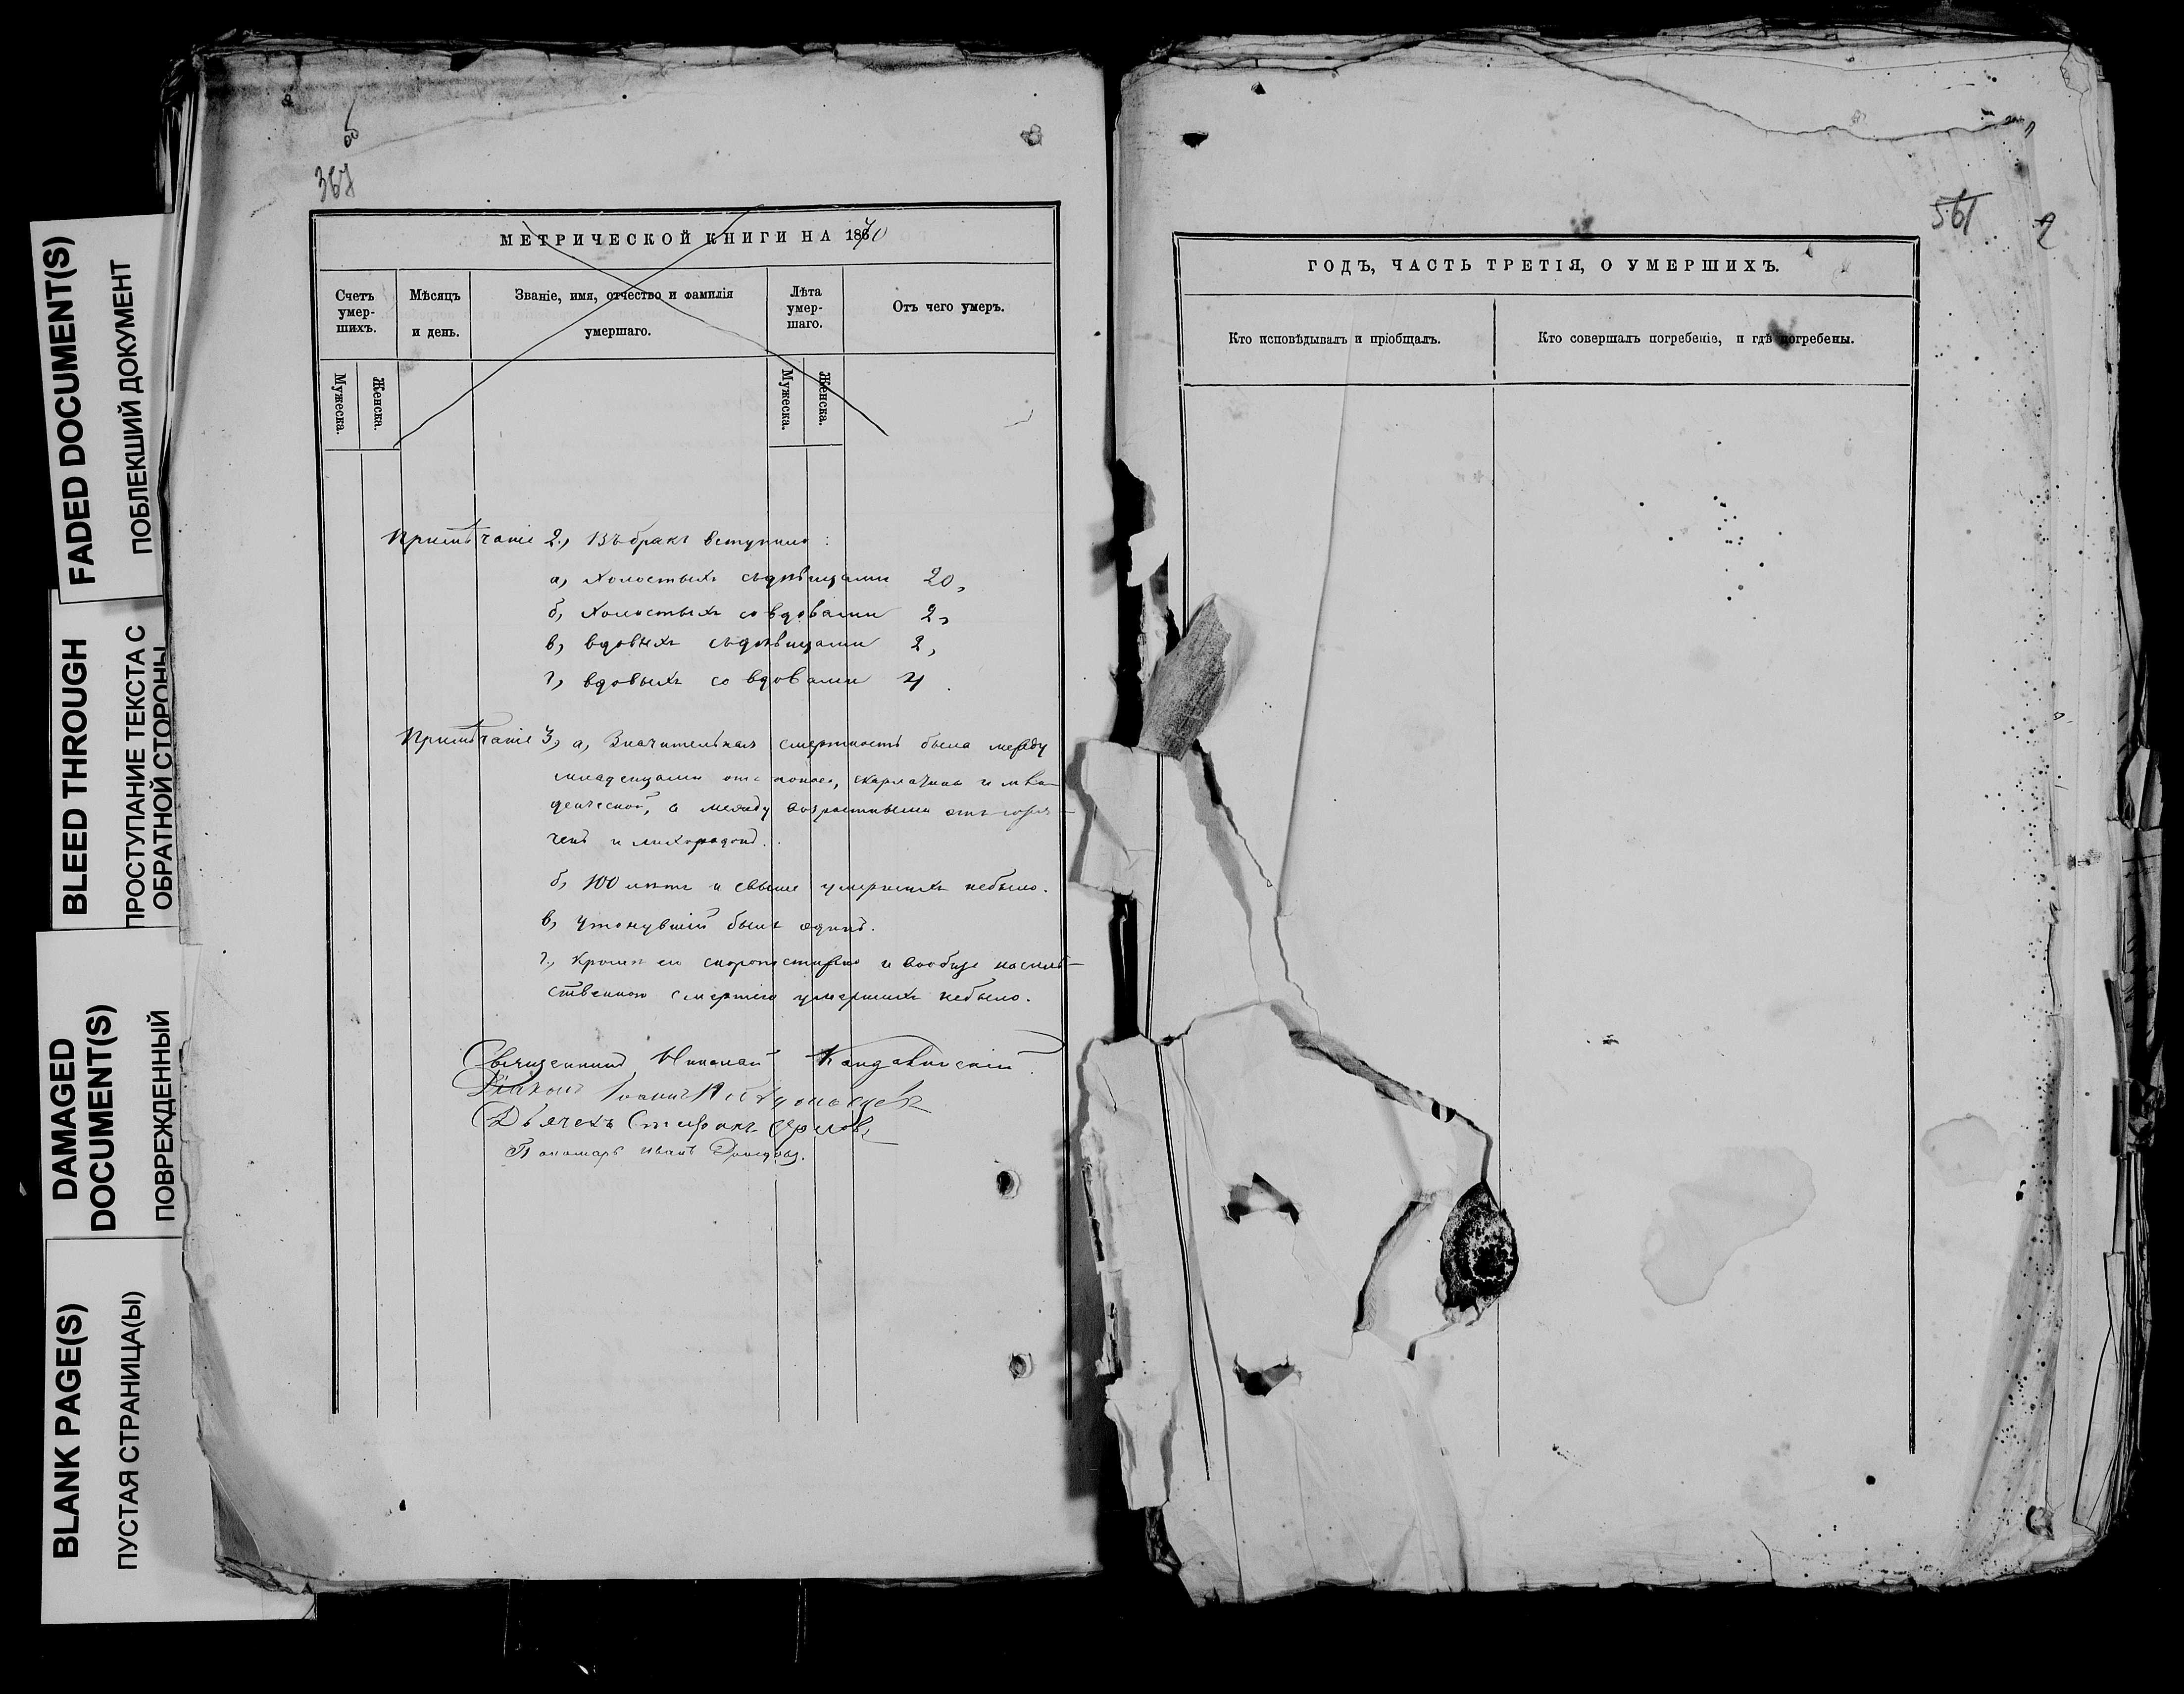 FADED DOCUMENT(S)
ПОБЛЕКШИЙ ДОКУМЕНТ
BLEED THROUGH
ПРОСТУПАНИЕ ТЕКСТА С
ОБРАТНОЙ СТОРОНЫ
DAMAGED
DOCUMENT(S)
ПОВРЕЖДЕННЫЙ
BLANK PAGE(S)
ПУСТАЯ СТРАНИЦА(Ы)
367
МЕТРИЧЕСКОЙ КНИГИ НА 1870
Счетъ
умер-
шихъ.
Мѣсяцъ
и день.
Званіе, имя, отчество и фамилія
умершаго.
Лѣта
умер-
шаго.
Отъ чего умеръ.
Мужеска.
Женска.
Мужеска.
Женска.
Примѣчаніе 2., Въ бракъ вступило:
а, холостыхъ съ дѣвицами 20,
б, холостыхъ со вдовами 2,
в, вдовыхъ съ дѣвицами 2,
г, вдовыхъ со вдовами 4.
Примѣчаніе 3, а, Значительная смертность была между
младенцами отъ поноса, скарлатины и мла-
денческой, а между возрастными отъ горя-
чекъ и лихорадокъ.
б, 100 лѣтъ и свыше умершихъ небыло.
в, утонувшій былъ одинъ.
г, кромѣ его скоропостижно и вообще насиль-
ственною смертію умершихъ небыло.
Священникъ Николай
Діаконъ Іоаннъ
Дьячекъ Стефанъ Орловъ
Пономарь Иванъ
561
ГОДЪ, ЧАСТЬ ТРЕТІЯ, О УМЕРШИХЪ.
Кто исповѣдывалъ и пріобщалъ.
Кто совершалъ погребеніе, и гдѣ погребены.